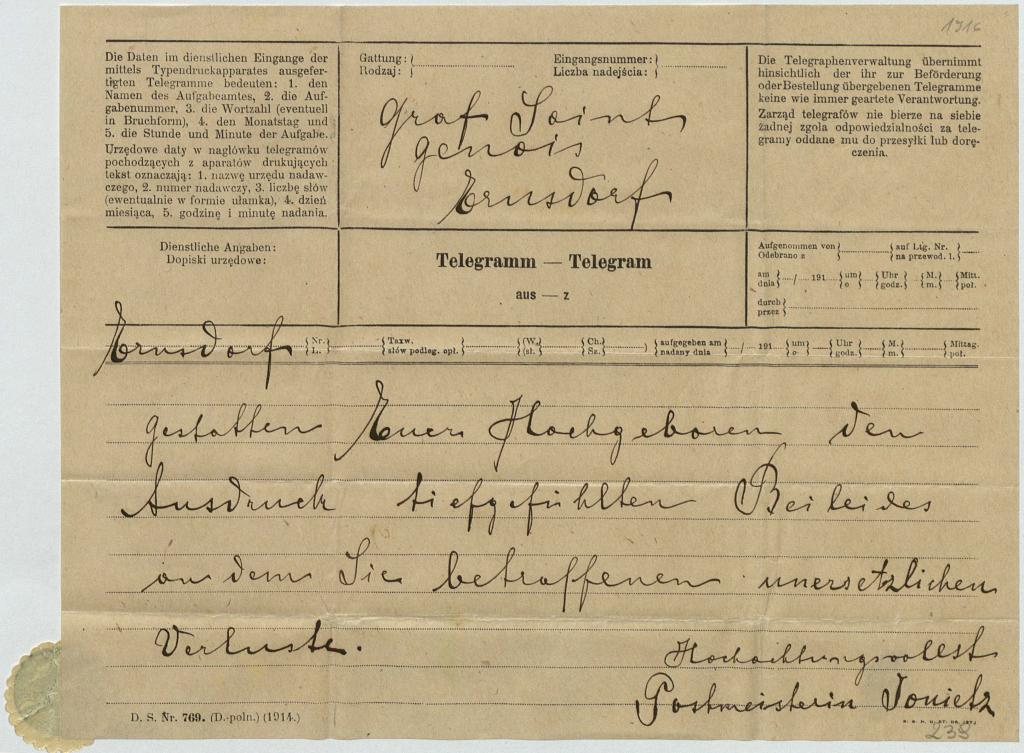 1916
Die Daten im dienstlichen Eingange der
mittels Typendruckapparates ausgefer-
tigten Telegramme bedeuten: 1. den
Namen des Aufgabeamtes, 2. die Auf-
gabenummer, 3. die Wortzahl (eventuell
in Bruchform), 4. den Monatstag und
5. die Stunde und Minute der Aufgabe.
Urzędowe daty w nagłówku telegramów
pochodzących z aparatów drukujących
tekst oznaczają: 1. nazwę urzędu nadaw-
czego, 2. numer nadawczy, 3. liczbę słów
(ewentualnie w formie ułamka), 4. dzień
miesiąca, 5. godzinę i minutę nadania.
Gattung: Eingangsnummer:
Rodzaj: Liczba nadejścia:
Graf Saint
genois
Ernsdorf
Die Telegraphenverwaltung übernimmt
hinsichtlich der ihr zur Beförderung
oder Bestellung übergebenen Telegramme
keine wie immer geartete Verantwortung.
Zarząd telegrafów nie bierze na siebie
żadnej zgoła odpowiedzialności za tele-
gramy oddane mu do przesyłki lub dorę-
czenia.
Dienstliche Angaben:
Dopiski urzędowe:
Telegramm — Telegram
aus — z
Aufgenommen von auf Lig. Nr.
Odebrano z na przewod. l.
am / 191 um Uhr M. Mitt.
dnia o godz. m. poł.
durch
przez
Ernsdorf Nr. Taxw. (W. Ch. ) aufgegeben am / 191 um Uhr M. Mittag.
L. słów podleg. opł. (sł. Sz. nadany dnia o godz. m. poł.
gestatten Euer Hochgeboren den
Ausdruck tiefgefühlten Beileides
an dem Sie betroffenen unersetzlichen
Verluste.
Hochachtungsvollest
Postmeisterin Jonietz
D. S. Nr. 769. (D.-poln.) (1914.)
238